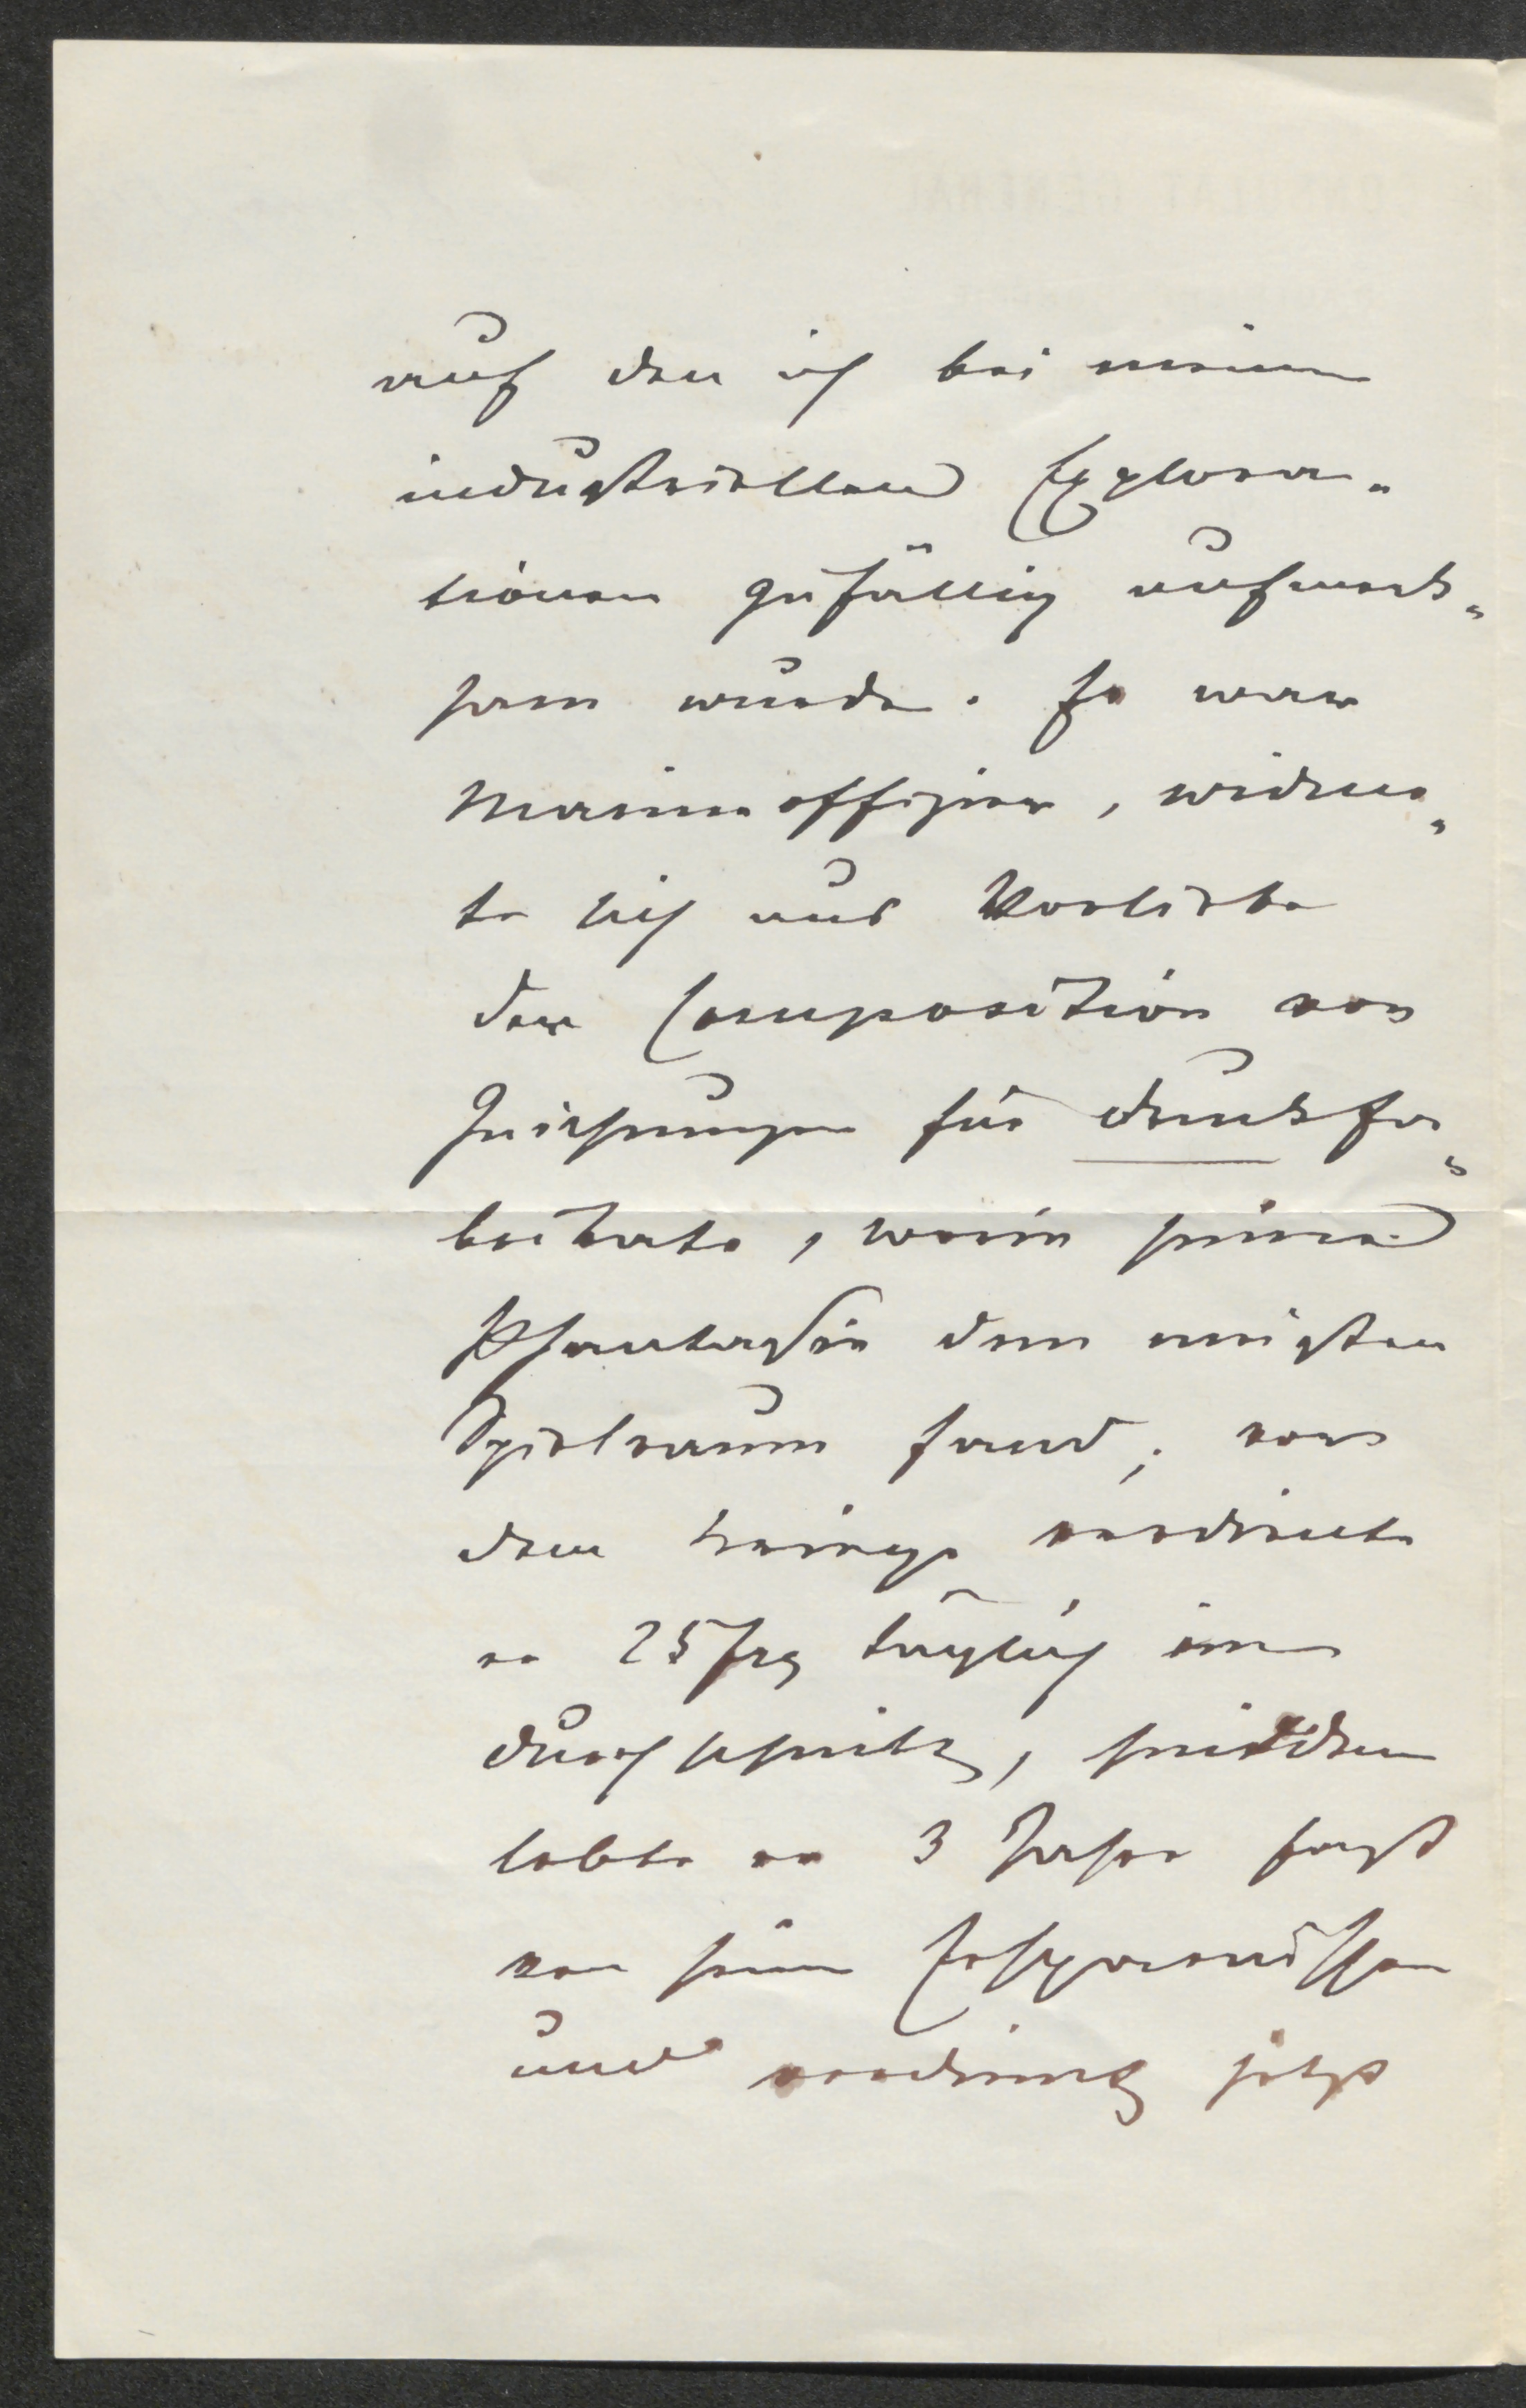 auf den ich bei meinen
industriellen Explora-
tionen zufällig aufmerk-
sam wurde. Er war
Marineoffizier, widme-
te sich aus Vorliebe
der Composition von
Zeichnungen für Druckfa-
brikate, worin seine
Phantasie den meisten
Spielraum fand; vor
dem Kriege verdiente
er 25 frs täglich im
Durchschnitt, seitdem
lebte er 3 Jahre fast
von seinen Ersparnissen
und verdient jetzt